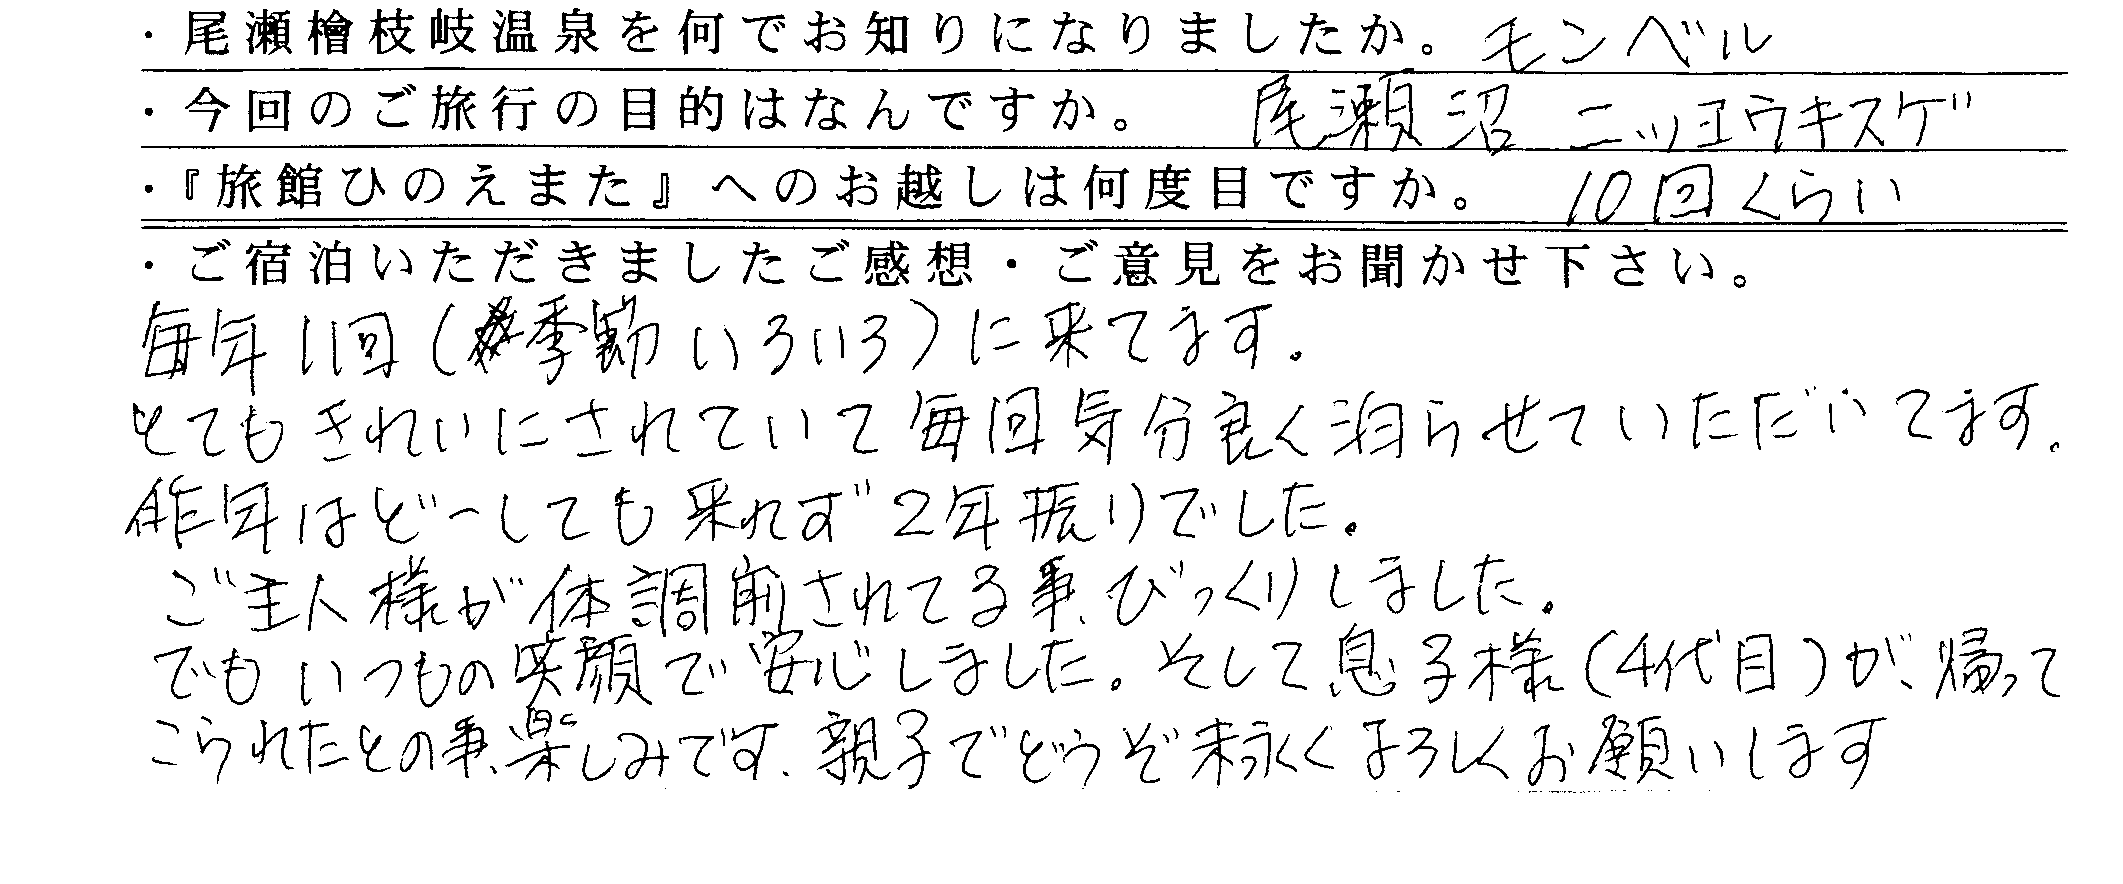 ・尾瀬檜枝岐温泉を何でお知りになりましたか。モンベル
・今回のご旅行の目的はなんですか。 尾瀬沼 ニッコウキスゲ
・『旅館ひのえまた』へのお越しは何度目ですか。 10回くらい
・ご宿泊いただきましたご感想・ご意見をお聞かせ下さい。
毎年1回(季節いろいろ)に来てます。
とてもきれいにされていて毎回気分良く泊らせていただいてます。
昨年はどーしても来れず2年振りでした。
ご主人様が体調崩されてる事、びっくりしました。
でもいつもの笑顔で安心しました。そして息子様(4代目)が、帰って
こられたとの事、楽しみです。親子でどうぞ末永くよろしくお願いします